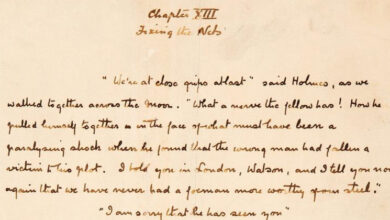 Chapter XIII
Fixing the Nets
"We're at close grips at last" said Holmes, as we
walked together across the Moor. "What a nerve the fellow has! How he
pulled himself together in the face of what must have been a
paralysing shock when he found that the wrong man had fallen a
victim to his plot. I told you in London, Watson, and I tell you now
again that we have never had a foeman more worthy of our steel."
"I am sorry that he has seen you"